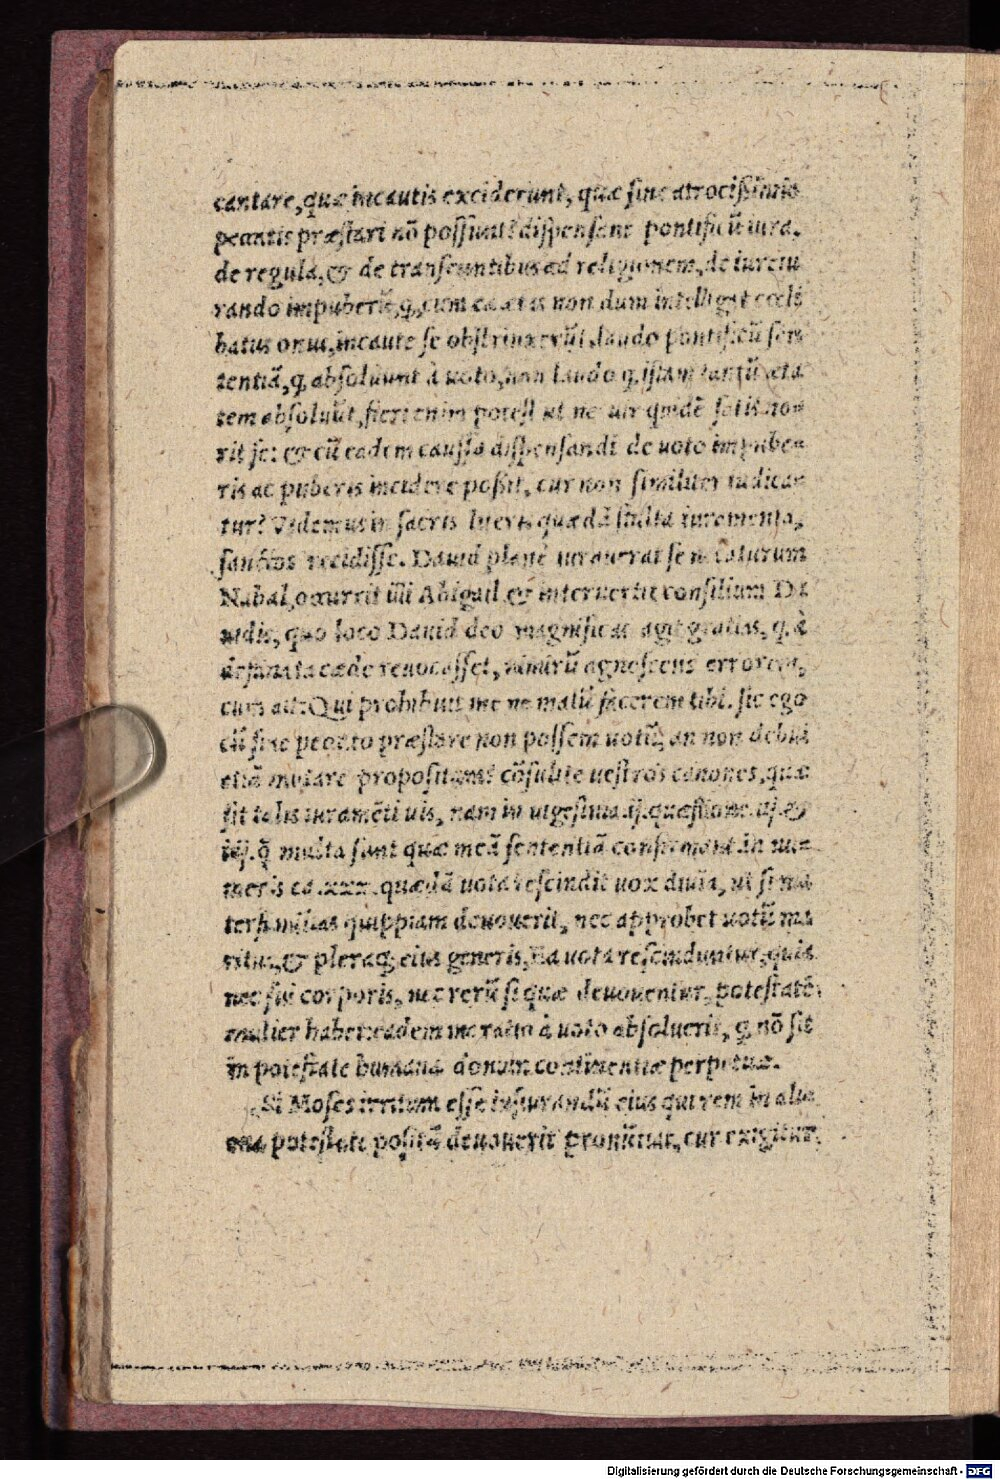 cantare, quæ incautis exciderunt, quæ sine atrocißimis
peccatis præstari nō possunt? dispensant pontificū iura,
de regula, & de transeuntibus ad religionem, de iureiu
rando impuberū, q, cum ea ætas non dum intelligat cœli
batus onus, incaute se obstrinxerūt, laudo pontificū sen
tentiā, q, absoluunt à uoto, non laudo q, istam tantū æta
tem absoluūt, fieri enim potest ut ne uir quidē satis no
rit se: & cū eadem caussa dispensandi de uoto impube
ris ac puberis incidere poßit, cur non similiter iudican
tur? Videmus in sacris literis quædā stulta iuramenta,
sanctos recidisse. Dauid plane iurauerat se necaturum
Nabal, occurrit illi Abigail & interuertit consilium Da
uidis, quo loco Dauid deo magnificas agit gratias, q, à
destinata cæde reuocasset, nimirū agnoscens errorem,
cum ait: Qui prohibuit me ne malū facerem tibi. sic ego
cū sine peccato præstare non possem uotū, an non debui
etiā mutare propositum? cōsulite uestros canones, quæ
sit talis iuramēti uis, nam in uigesima ij. quæstione. ij. &
iiij. q̄ multa sunt quæ meā sententiā confirmant. in nu
meris ca. xxx. quædā uota rescindit uox diuīa, ut si ma
terfamilias quippiam deuouerit, nec approbet uotū ma
ritus, & pleraq; eius generis, ea uota rescinduntur, quia
nec sui corporis, nec rerū si quæ deuouentur, potestatē
mulier habet: eadem me ratio à uoto absoluerit, q, nō sit
in potestate humana donum continentiæ perpetuæ.
Si Moses irritum esse iusiurandū eius qui rem in alie
na potestate positā deuouerit pronūciat, cur exigitur,
Digitalisierung gefördert durch die Deutsche Forschungsgemeinschaft - DFG